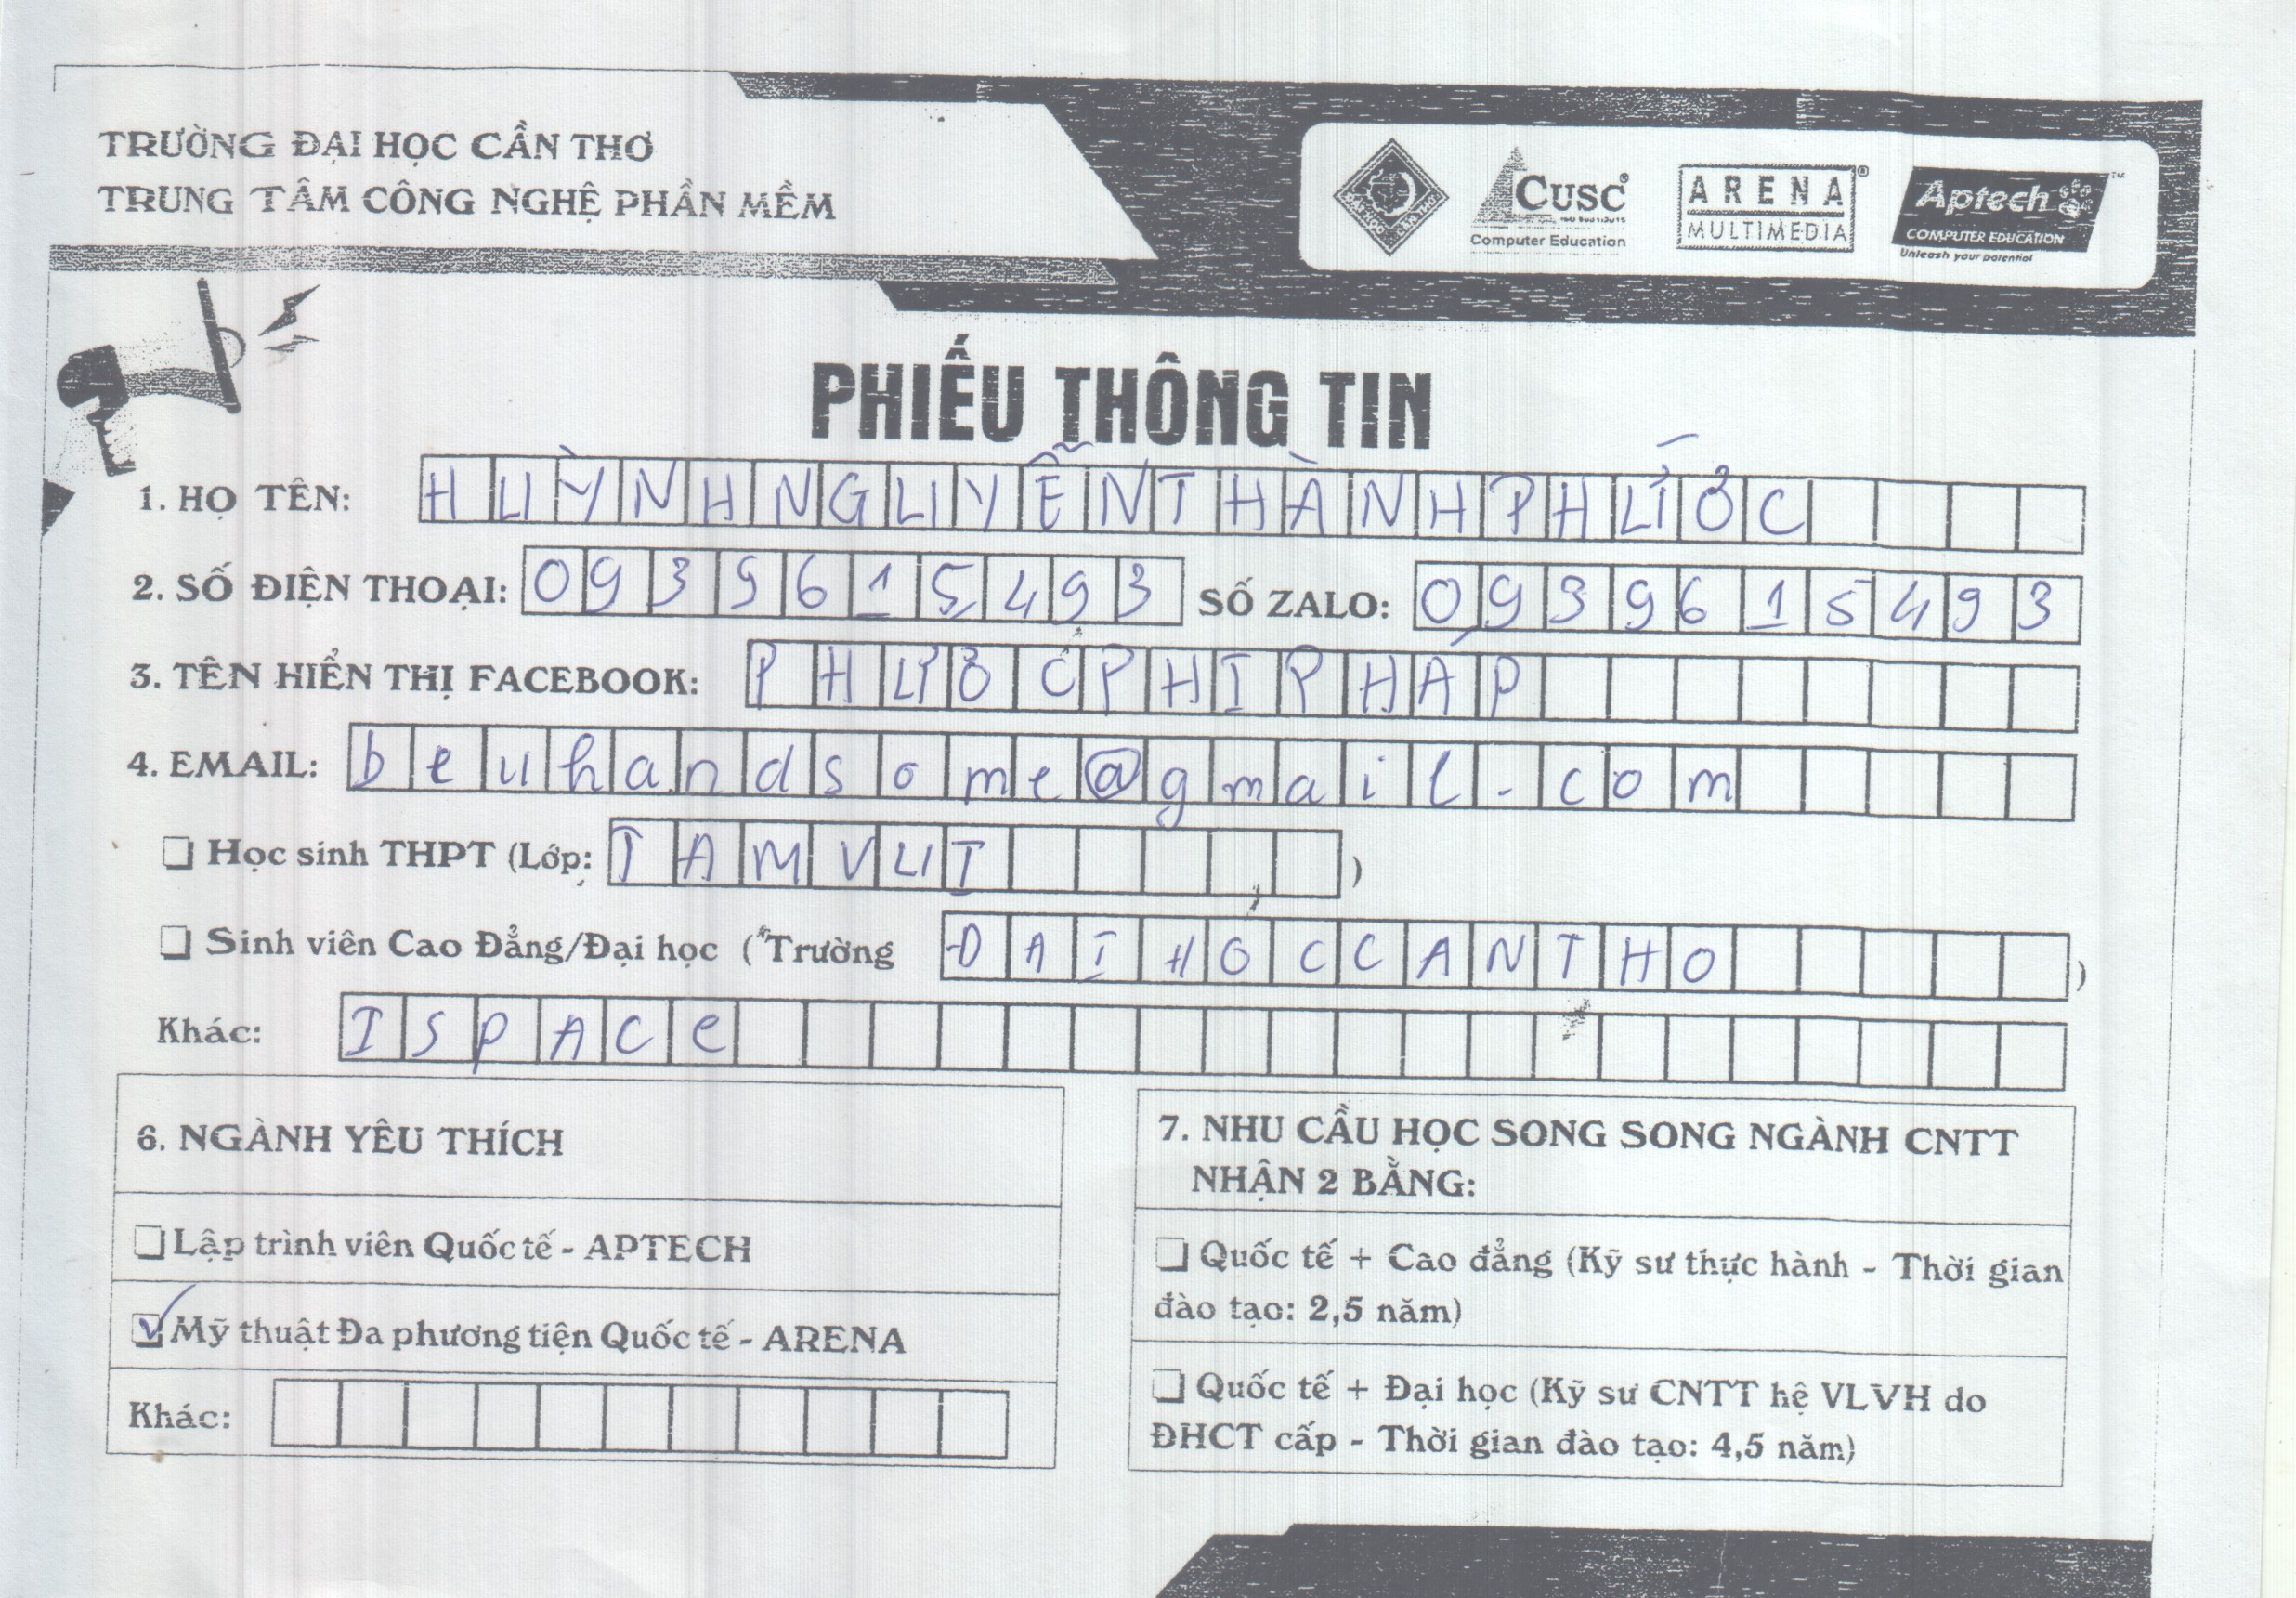 TRƯỜNG ĐẠI HỌC CẦN THƠ
TRUNG TÂM CÔNG NGHỆ PHẦN MỀM
CUSC®
Computer Education
ARENA®
MULTIMEDIA
Aptech™
COMPUTER EDUCATION
Unleash your potential
PHIẾU THÔNG TIN
1. HỌ TÊN: HUỲNHNGUYỄNTHÀNHPHƯỚC
2. SỐ ĐIỆN THOẠI: 0939615493 SỐ ZALO: 0939615493
3. TÊN HIỂN THỊ FACEBOOK: PHƯỚCPHIPHÁP
4. EMAIL: beuhandsome@gmail.com
❏ Học sinh THPT (Lớp: TAMVUT)
❏ Sinh viên Cao Đẳng/Đại học (Trường ĐAIHOCCANTHO)
Khác: ISPACe
6. NGÀNH YÊU THÍCH
❏ Lập trình viên Quốc tế - APTECH
☑ Mỹ thuật Đa phương tiện Quốc tế - ARENA
Khác:
7. NHU CẦU HỌC SONG SONG NGÀNH CNTT
NHẬN 2 BẰNG:
❏ Quốc tế + Cao đẳng (Kỹ sư thực hành - Thời gian
đào tạo: 2,5 năm)
❏ Quốc tế + Đại học (Kỹ sư CNTT hệ VLVH do
ĐHCT cấp - Thời gian đào tạo: 4,5 năm)